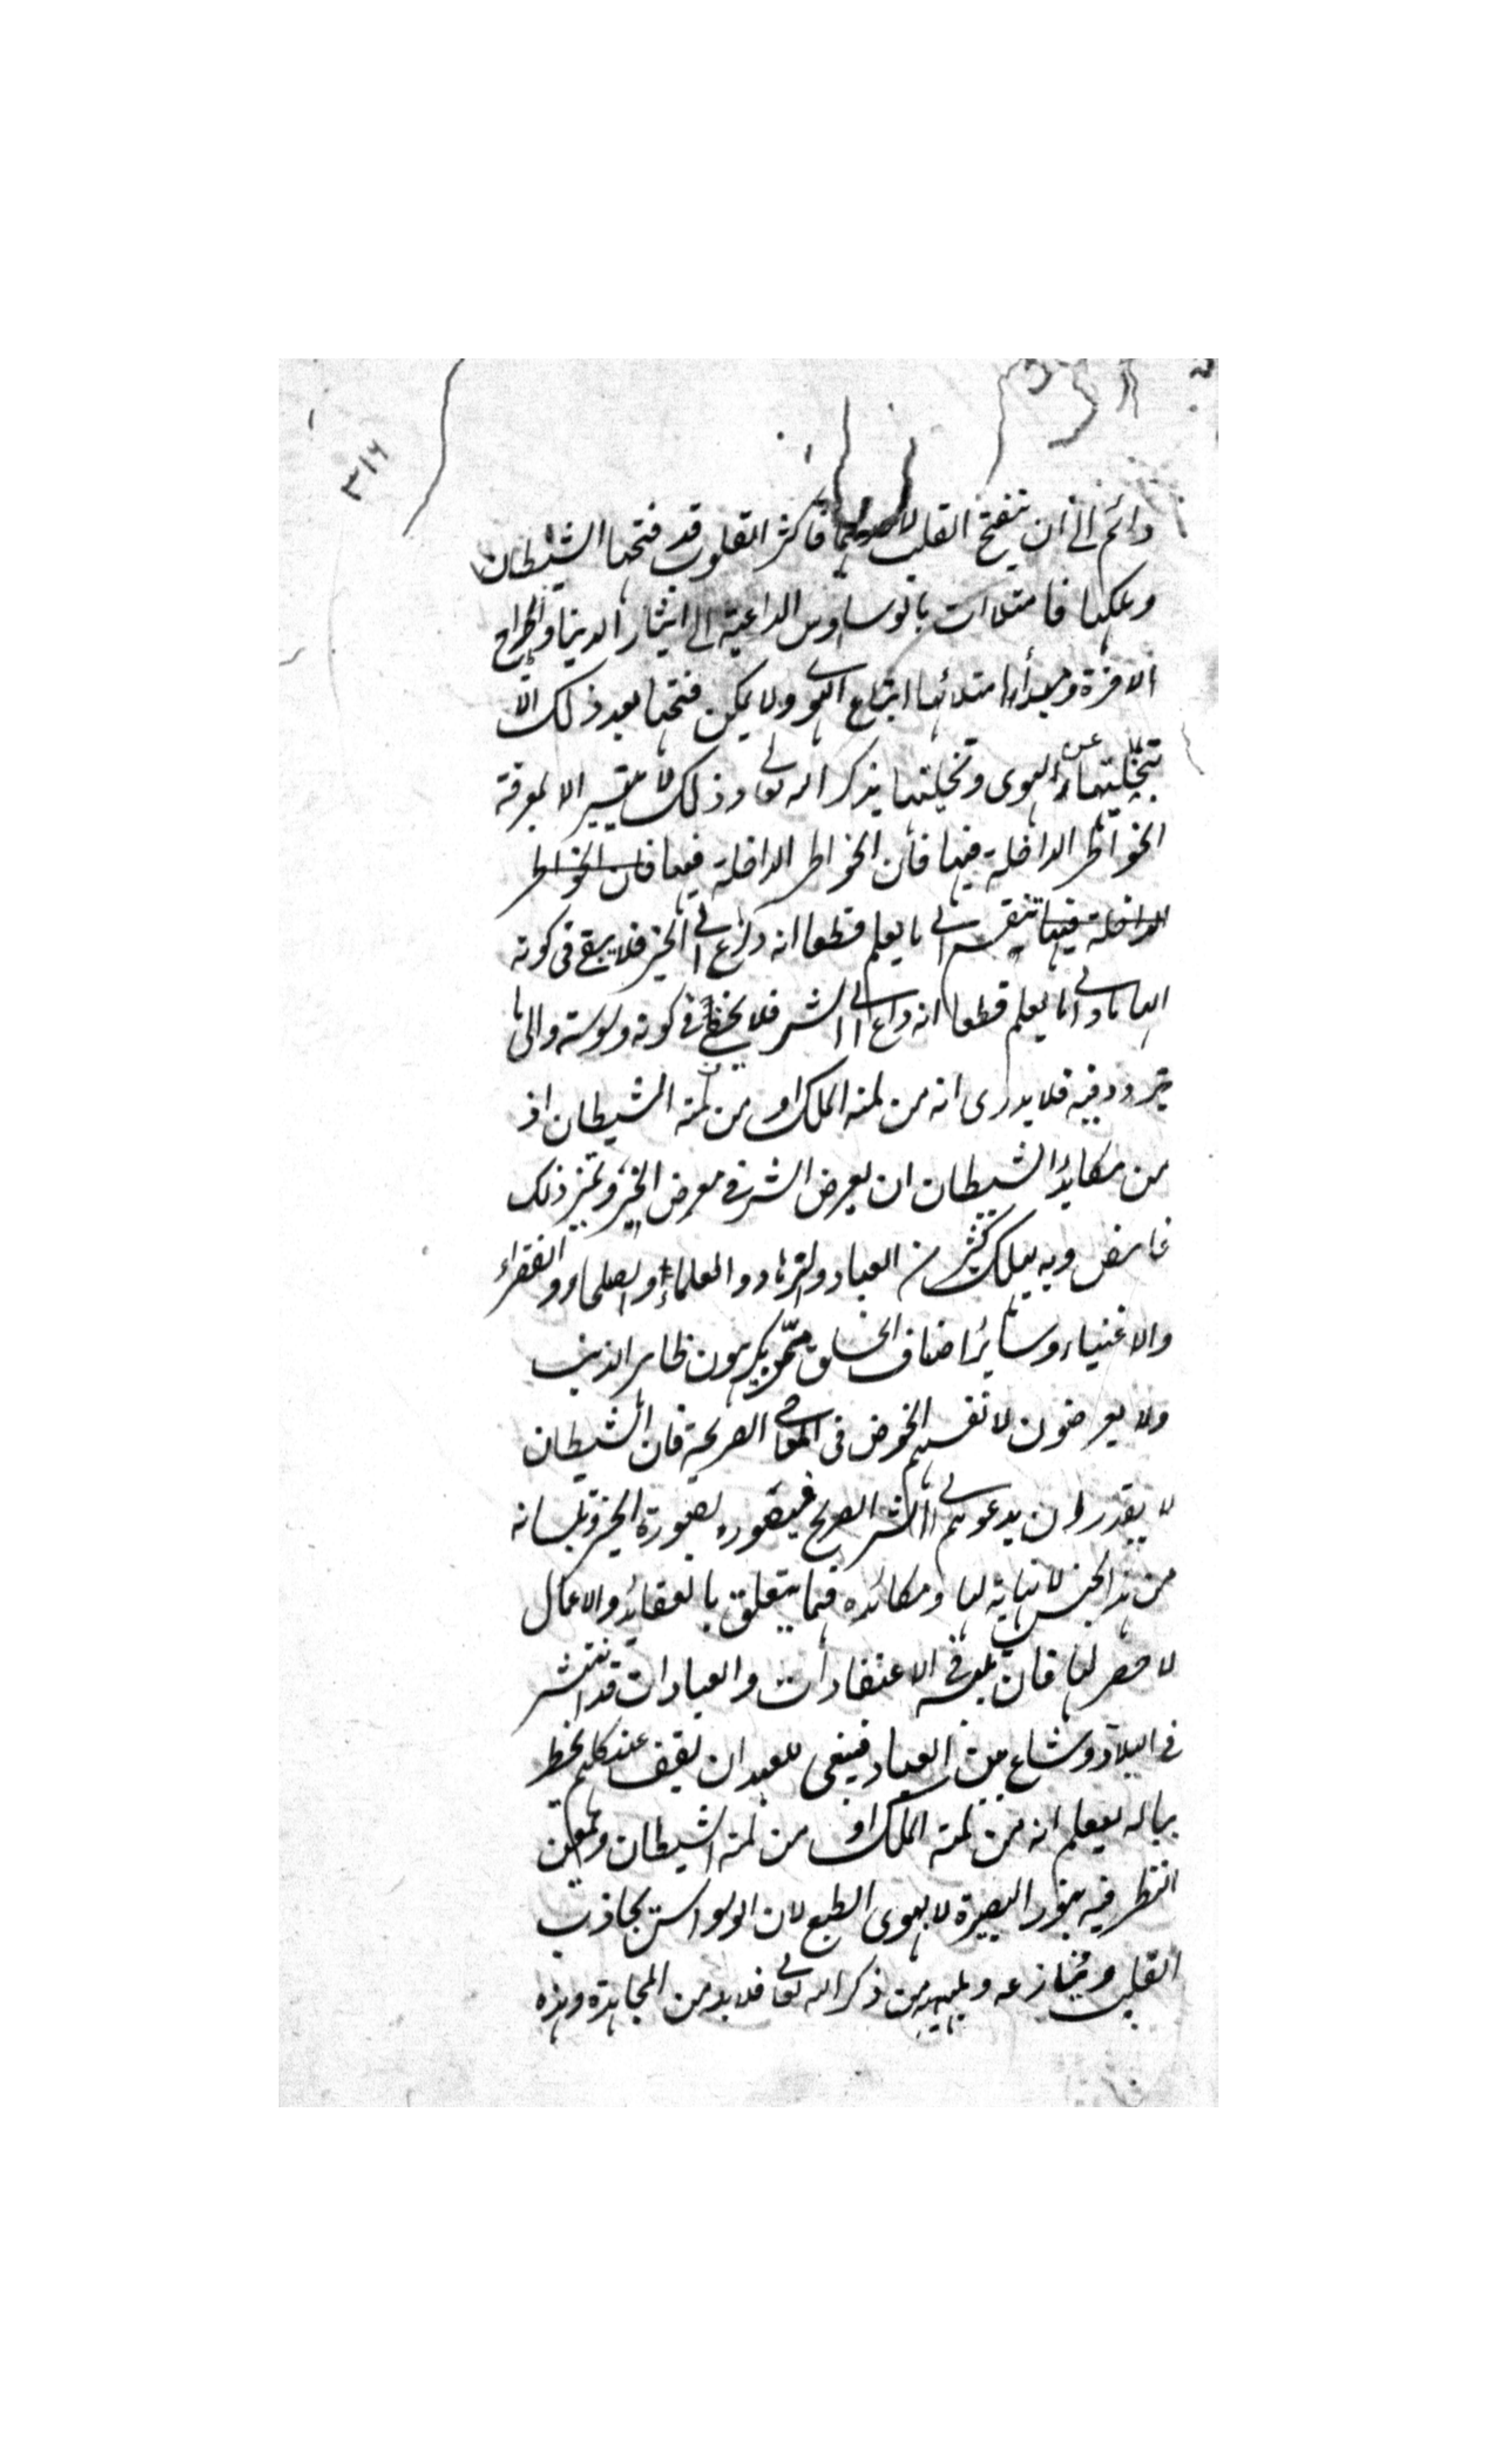 ٣١٦
دائم الى ان ينفتح القلب لاحدهما فاكثر القلوب قد فتحها الشيطان
وملكها فامتلات بالوساوس الداعية الى ايثار الدنيا واطراح
الاخرة ومبدأ امتلائها اتباع الهوى ولا يمكن فتحها بعد ذلك الا
بتخليتها عن الهوى وتحليتها بذكر الله تعالى وذلك لا يتيسر الا بمعرفة
الخواطر الداخلة فيها فان الخواطر الداخلة فيها فان الخواطر
الداخلة فيها تنقسم الى ما يعلم قطعا انه داع الى الخير فلا يبقى فى كونه
الهاما والى ما يعلم قطعا انه داع الى الشر فلا يخفى فى كونه وسوسة والى ما
يتردد فيه فلا يدرى انه من لمة الملك او من لمة الشيطان اذ
من مكايد الشيطان ان يعرض الشر فى معرض الخير وتميز ذلك
غامض وبه يهلك كثير من العباد والزهاد والعلماء والصلحاء والفقراء
والاغنياء وسائر اصناف الخلق ممن يكرهون ظاهر الذنب
ولا يعرضون لانفسهم الخوض فى المعاصى الصريحة فان الشيطان
لا يقدر ان يدعوهم الى الشر الصريح فيصوره بصورة الخير وتلبيساته
من هذا الجنس لا نهاية لها ومكائده فيما يتعلق بالعقائد والاعمال
لا حصر لها فان تلبيسه فى الاعتقادات والعبادات قد انتشر
فى البلاد وشاع بين العباد فينبغى للعبد ان يقف عند كل هم يخطر
بباله ليعلم انه من لمة الملك او من لمة الشيطان ويمعن
النظر فيه بنور البصيرة لا بهوى الطبع لان الوسواس يجاذب
القلب وينازعه ويلهيه من ذكر الله تعالى فلا بد من المجاهدة وهذه